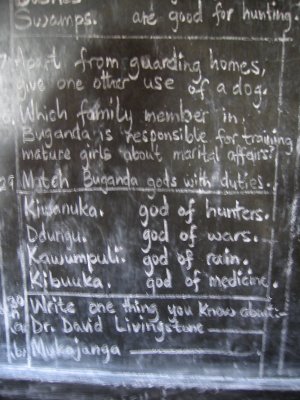 Swamps. are good for hunting.
Apart from guarding homes,
give one other use of a dog.
Which family member in
Buganda is responsible for training
mature girls about marital affairs?
29 Match Buganda gods with duties.
Kiwanuka. god of hunters.
Ddungu. god of wars.
Kawumpuli. god of rain.
Kibuuka. god of medicine.
30 Write one thing you know about:-
(a) Dr. David Livingstone
(b) Mukajanga